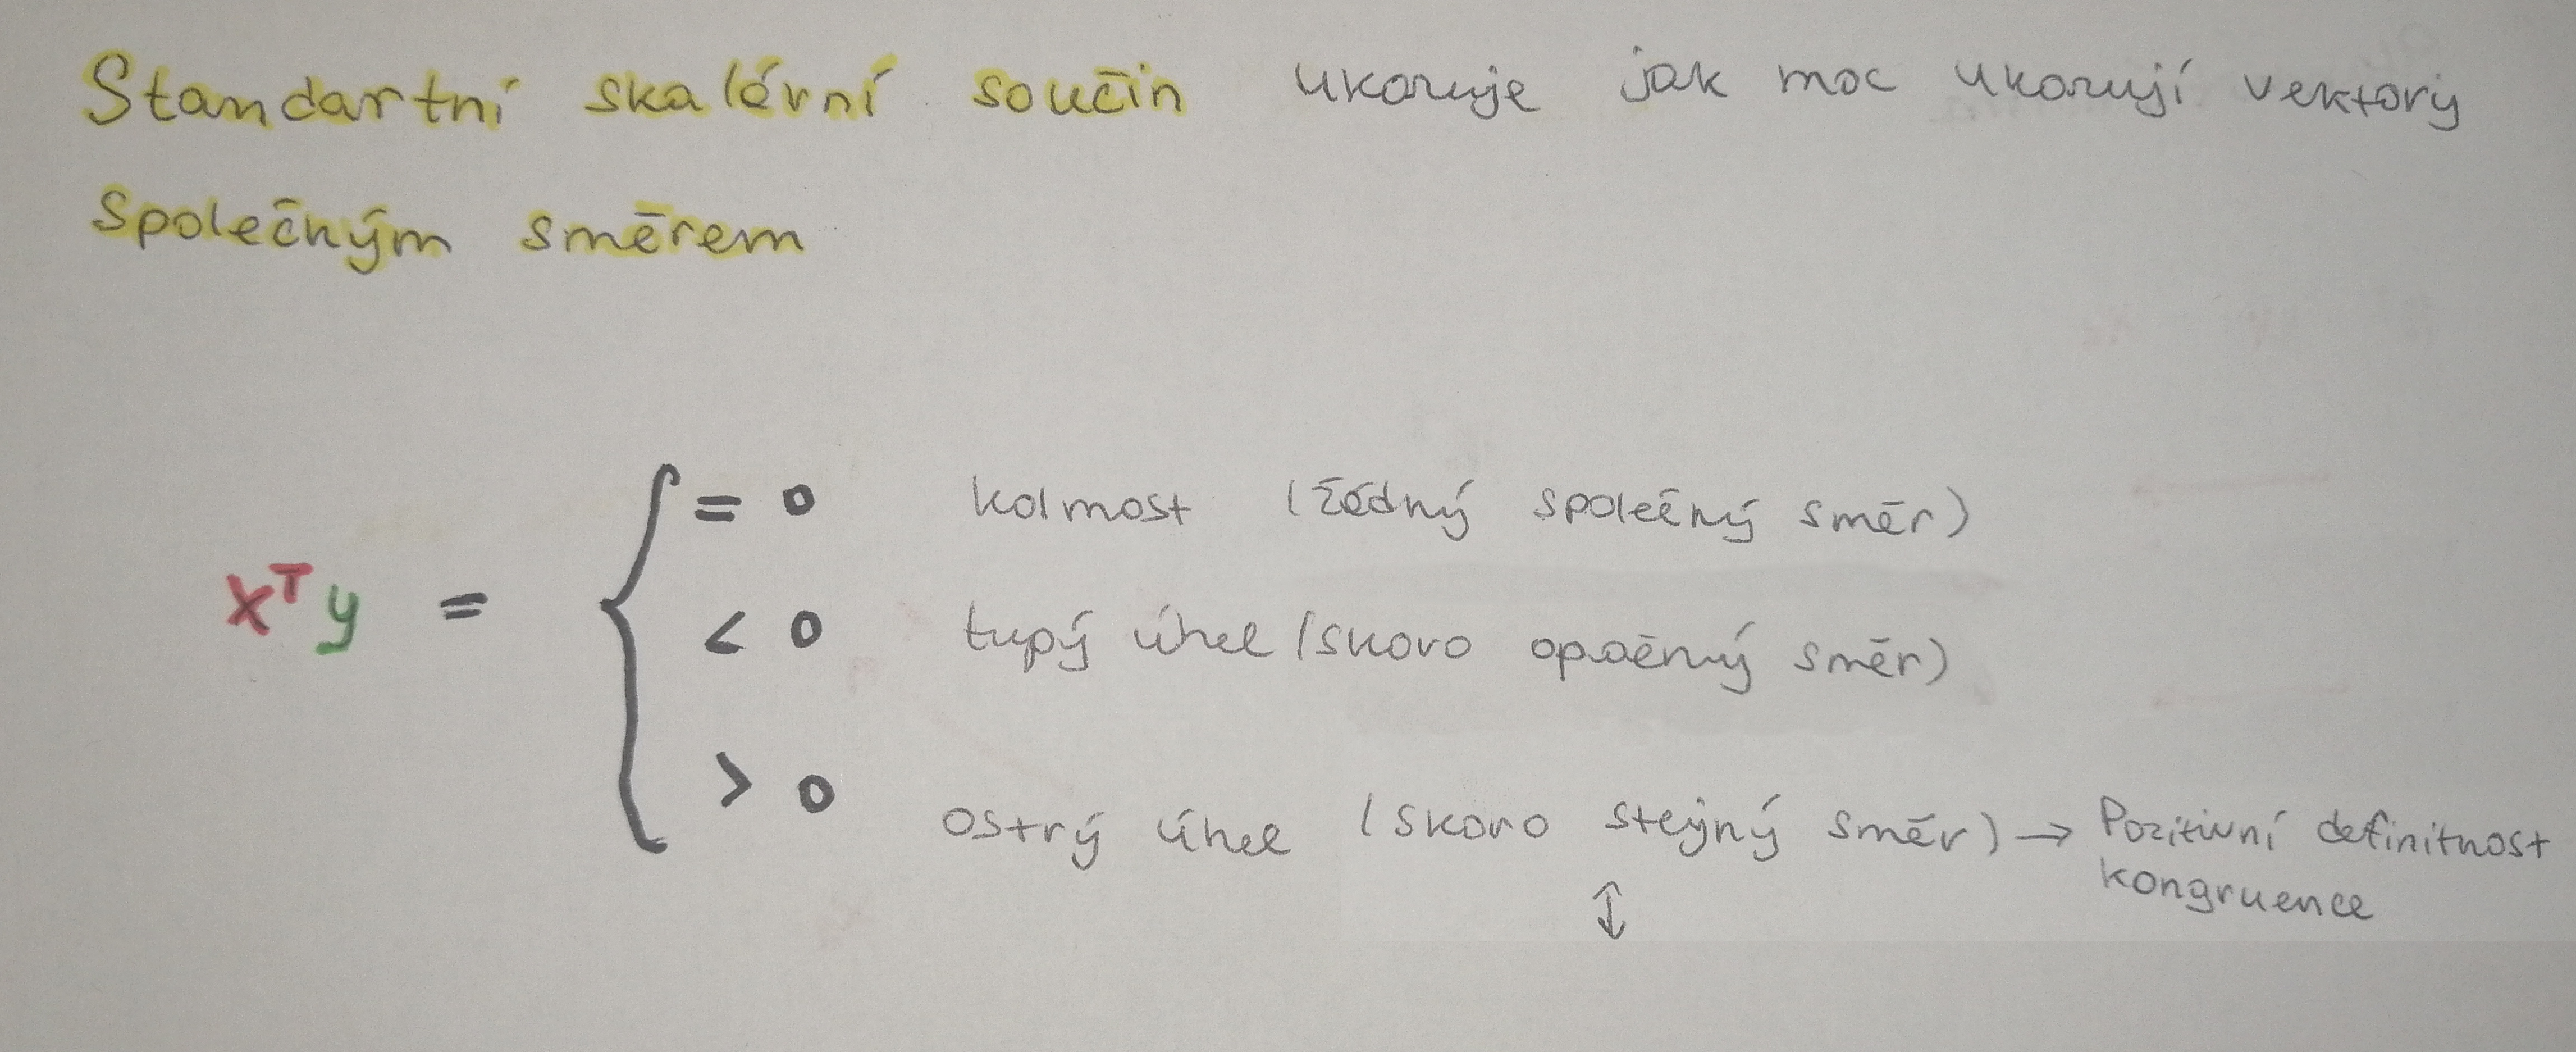 Standartní skalární součin ukazuje jak moc ukazují vektory
společným směrem
= 0 kolmost (žádný společný směr)
xᵀy = { < 0 tupý úhel (skoro opačný směr)
> 0 ostrý úhel (skoro stejný směr) → Pozitivní definitnost
kongruence
↕